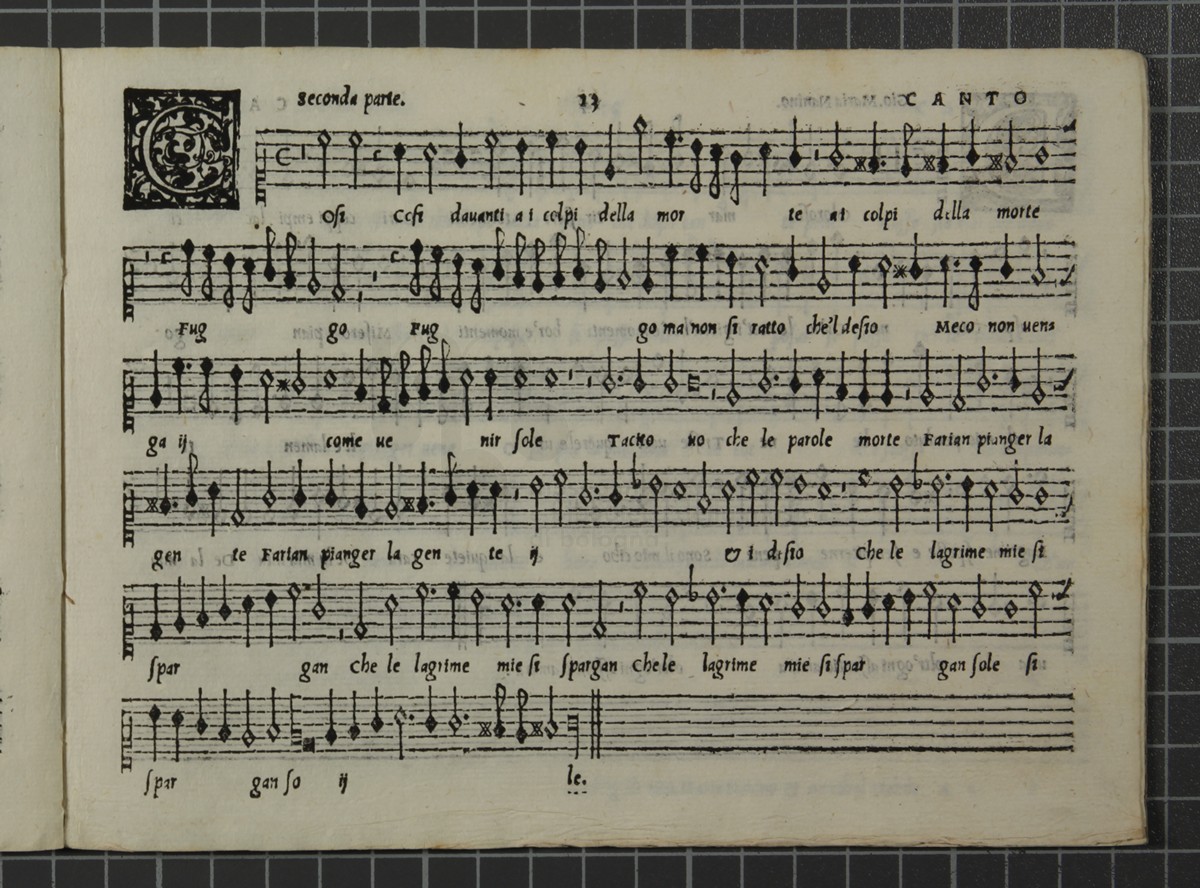 Seconda parte. 13 CANTO
COsi Cosi dauanti ai colpi della mor te ai colpi della morte
Fug go Fug go ma non si ratto che'l desio Meco non uen=
ga ij come ue nir sole Tacito uo che le parole morte Farian pianger la
gen te Farian pianger la gen te ij & i desio Che le lagrime mie si
spar gan Che le lagrime mie si spargan Che le lagrime mie si spar gan sole si
spar gan so ij le.